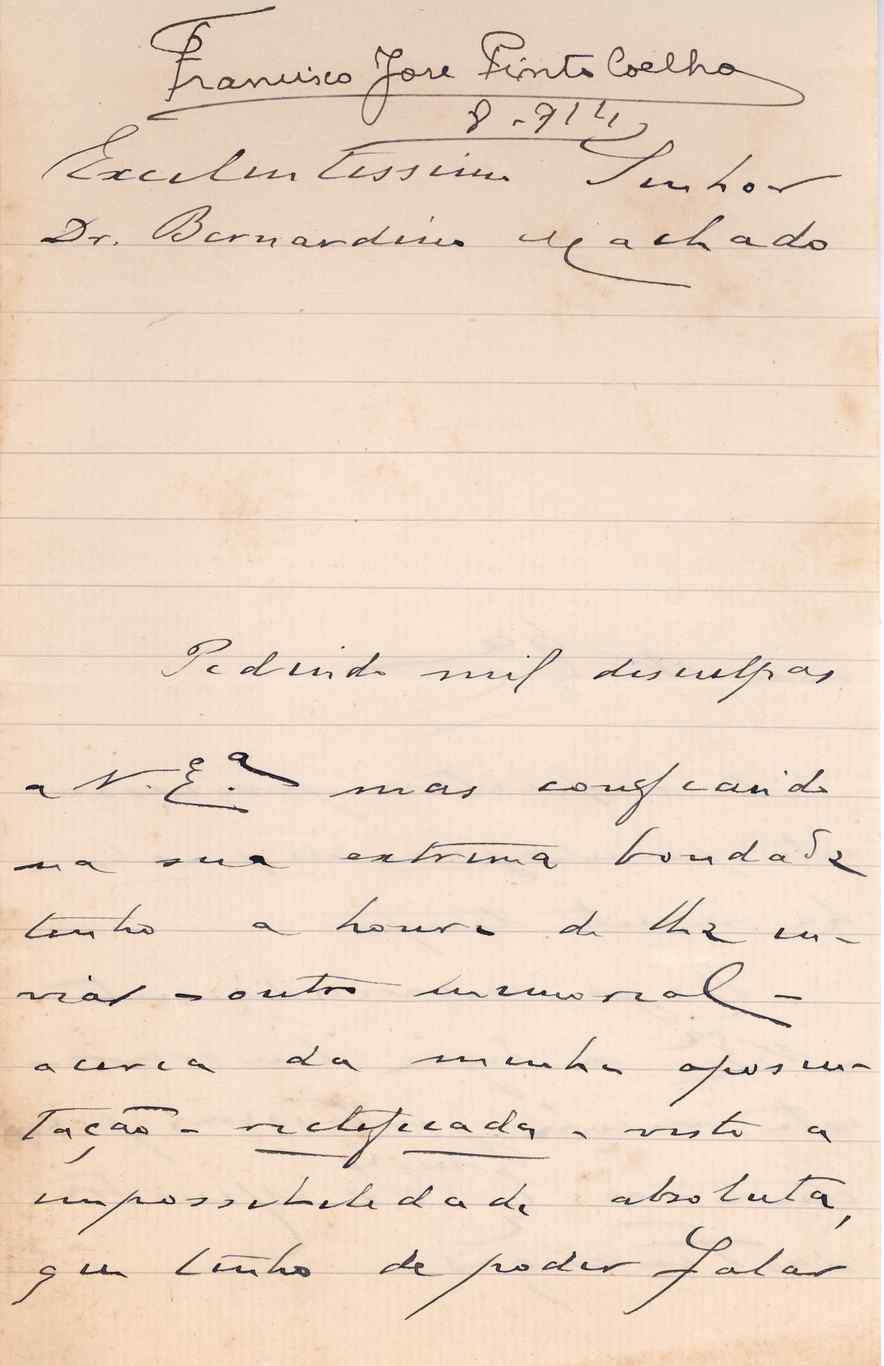 Francisco José Pinto Coelho
8-914
Excelentissimo Senhor
Dr. Bernardino Machado
Pedindo mil desculpas
a V. Eª. mas confiando
na sua extrema bondade
tenho a honra de lhe en-
viar - outro memorial -
acerca da minha aposen-
tação - rectificada - visto a
impossibilidade absoluta,
que tenho de poder falar